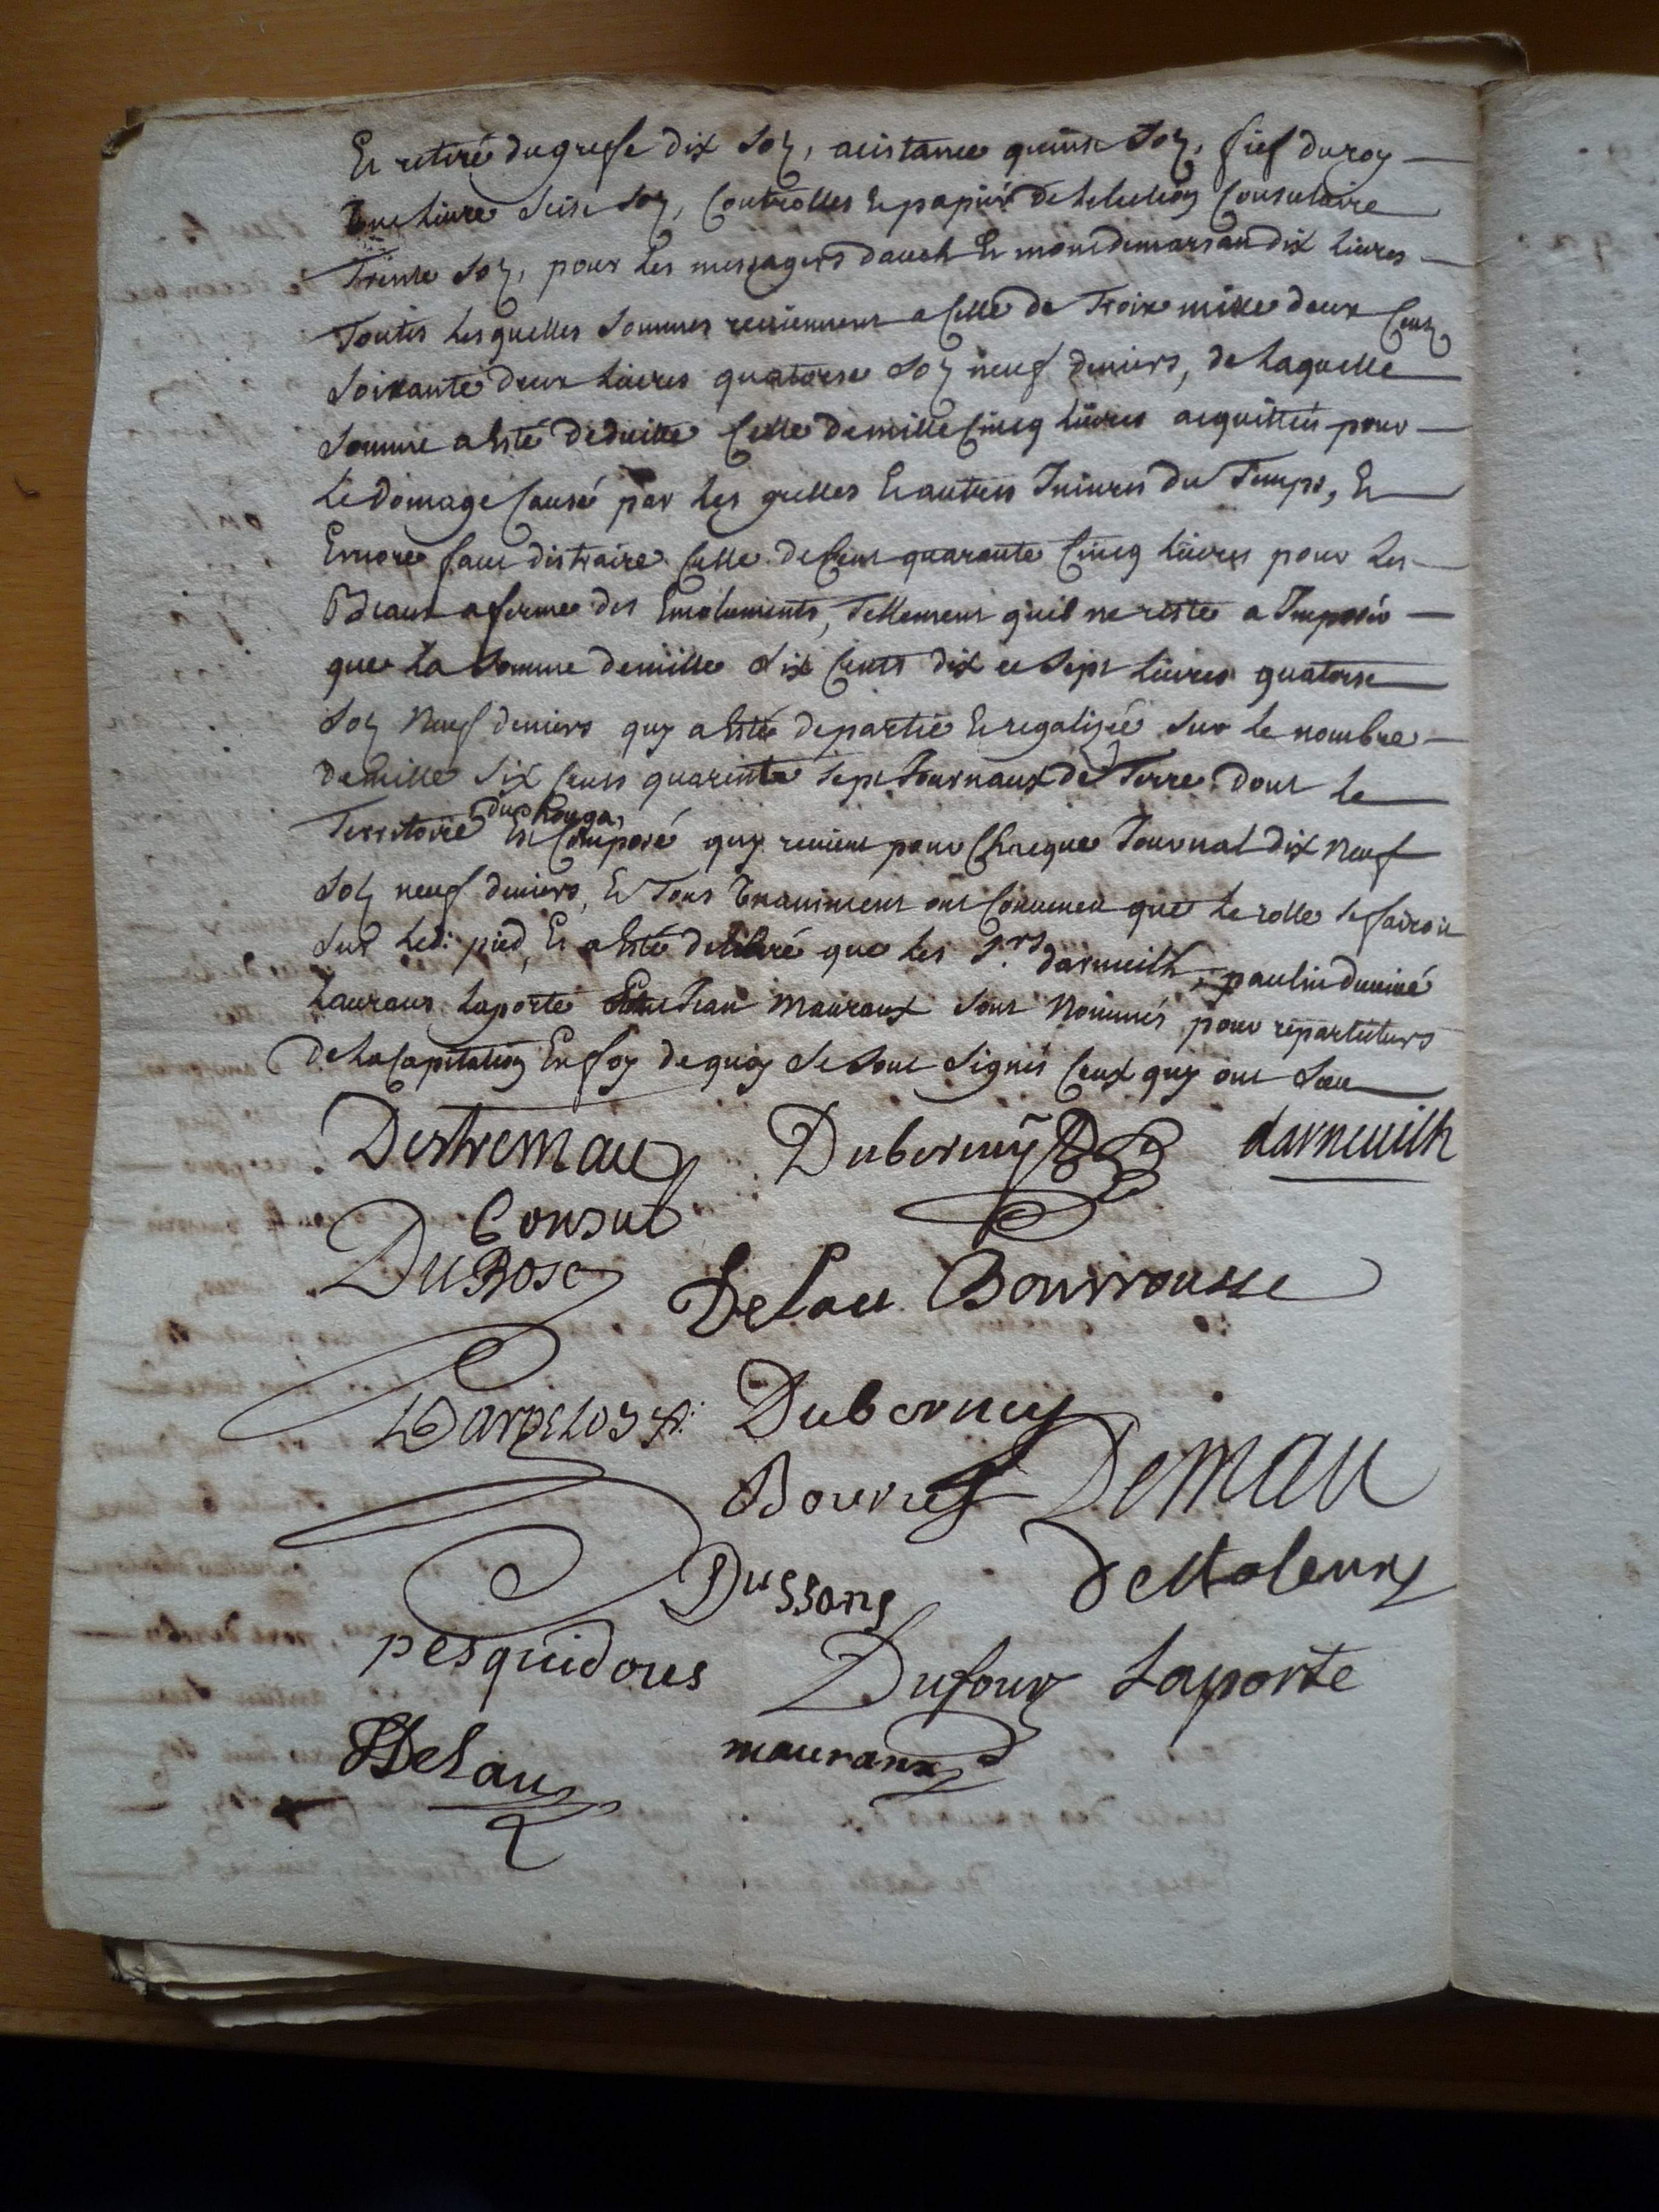 Et retiré du grefe dix sols, acistance quinse sols, fief du roy
une livre seise sols, Controlles et papier de lelection Consulaire
Trente sols, pour les messagers dauch et mondemarsan dix livres
Toutes lesquelles sommes reviennent a celle de Troix mille deux Cents
soixante deux livres quatorse sols neuf deniers, de laquelle
somme a esté deduitte celle de mille Cincq livres acquittés pour
le domage causé par les grelles et autres Injures du Temps, et
Encore faut distraire celle de Cent quarante Cincq livres pour les
a ferme des Emoluments, Tellement quil ne reste a Imposer
que la somme de mille dix ce sept livres quatorse
sols neuf deniers quy a esté departie et regalizée sur le nombre
de mille six Cents quarente sept Journaux de Terre dont le
du houga
Territoire est Composé quy revient pour Chaque Journal dix neuf
sols neuf deniers, et Tous Unanimement ont Convenu que le rolle se fairoit
sur led: pied, et a esté deliberé que les Srs darneuilh, paulin
Laurans Laporte Jean mauraux sont Nommés pour repartiteurs
de la Capitation En foy de quoy se sont signés Ceux quy ont sceu
Destremau Duberney darneuilh
Consul
DuBosc Delau Bourrousse
Darpelos Duberney
Bourrus Demau
Dussans
pesquidous Dufour Laporte
Delau mauranx